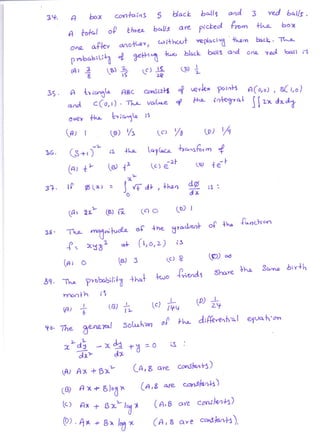 34. A box contains 5 black balls and 3 red balls.
A total of three balls are picked from the box
one after another, without replacing them back. The
probability of getting two black balls and one red ball is
(A) 3/8 (B) 2/15 (C) 15/28 (D) 1/2
35. A triangle ABC consists of vertex points A(0,0), B(1,0)
and C(0,1). The value of the integral ∬ 2x dx dy
over the triangle is
(A) 1 (B) 1/3 (C) 1/8 (D) 1/9
36. (S+1)⁻² is the laplace transform of
(A) t² (B) t³ (C) e⁻²ᵗ (D) te⁻ᵗ
37. If Ø(x) = ∫₀^(x²) √t dt, then dØ/dx is:
(A) 2x² (B) √x (C) 0 (D) 1
38. The magnitude of the gradient of the function
f = xyz³ at (1,0,2) is
(A) 0 (B) 3 (C) 8 (D) ∞
39. The probability that two friends share the same birth
month is
(A) 1/6 (B) 1/12 (C) 1/144 (D) 1/24
40. The general solution of the differential equation
x² d²y/dx² - x dy/dx + y = 0 is :
(A) Ax + Bx² (A,B are constants)
(B) Ax + B log x (A,B are constants)
(C) Ax + Bx² log x (A,B are constants)
(D) Ax + Bx log x (A,B are constants).